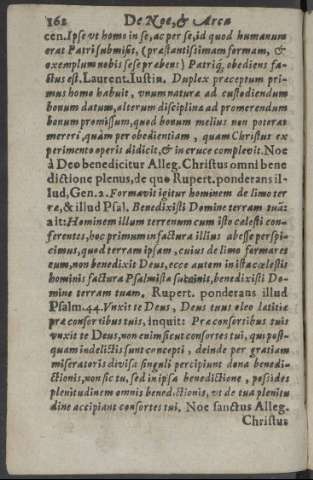 162 De Noe, & Arca
cen. Ipse vt homo in se, ac per se, id quod humanum
erat Patri submisit, (præstantissimam formam, &
exemplum nobis sese præbens) Patriq́, obediens fa-
ctus est. Laurent. Iustin. Duplex præceptum pri-
mus homo habuit, vnum natura ad custodiendum
bonum datum, alterum disciplina ad promerendum
bonum promissum, quod bonum melius non poterat
mereri, quàm per obedientiam, quam Christus ex
perimento operis didicit, & in cruce complevit. Noe
à Deo benedicitur Alleg. Christus omni bene
dictione plenus, de quo Rupert. ponderans il-
lud, Gen. 2. Formavit igitur hominem de limo ter
ræ, & illud Psal. Benedixisti Domine terram tuã:
ait: Hominem illum terrenum cum isto cælesti con-
ferentes, hoc primum in factura illius abesse perspi-
cimus, quod terram ipsam, cuius de limo formaret
eum, non benedixit Deus, ecce autem in ista cœlestis
hominis factura Psalmista succinit, benedixisti Do-
mine terram tuam. Rupert. ponderans illud
Psalm. 44. Vnxit te Deus, Deus tuus oleo lætitiæ
præ consortibus tuis, inquit: Præ consortibus tuis
vnxit te Deus, non enim sicut consortes tui, qui post-
quam in delictis sunt concepti, deinde per gratiam
miseratoris divisa singuli percipiunt dona benedi-
ctionis, non sic tu, sed in ipsa benedictione, possides
plenitudinem omnis benedictionis, vt de tua plenitu
dine accipiant consortes tui. Noe sanctus Alleg.
Christus